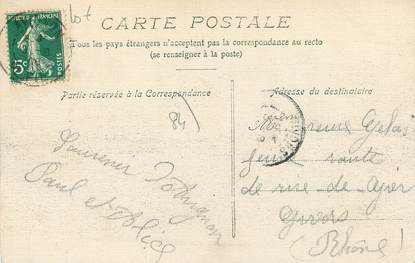 lot
CARTE POSTALE
Tous les pays étrangers n'acceptent pas la correspondance au recto
(se renseigner à la poste)
5c
POSTES
Partie réservée à la Correspondance
Adresse du destinataire
84
Souvenir d'Avignon
Paul et Alice
route
de rive de gier
Givors
(Rhône)